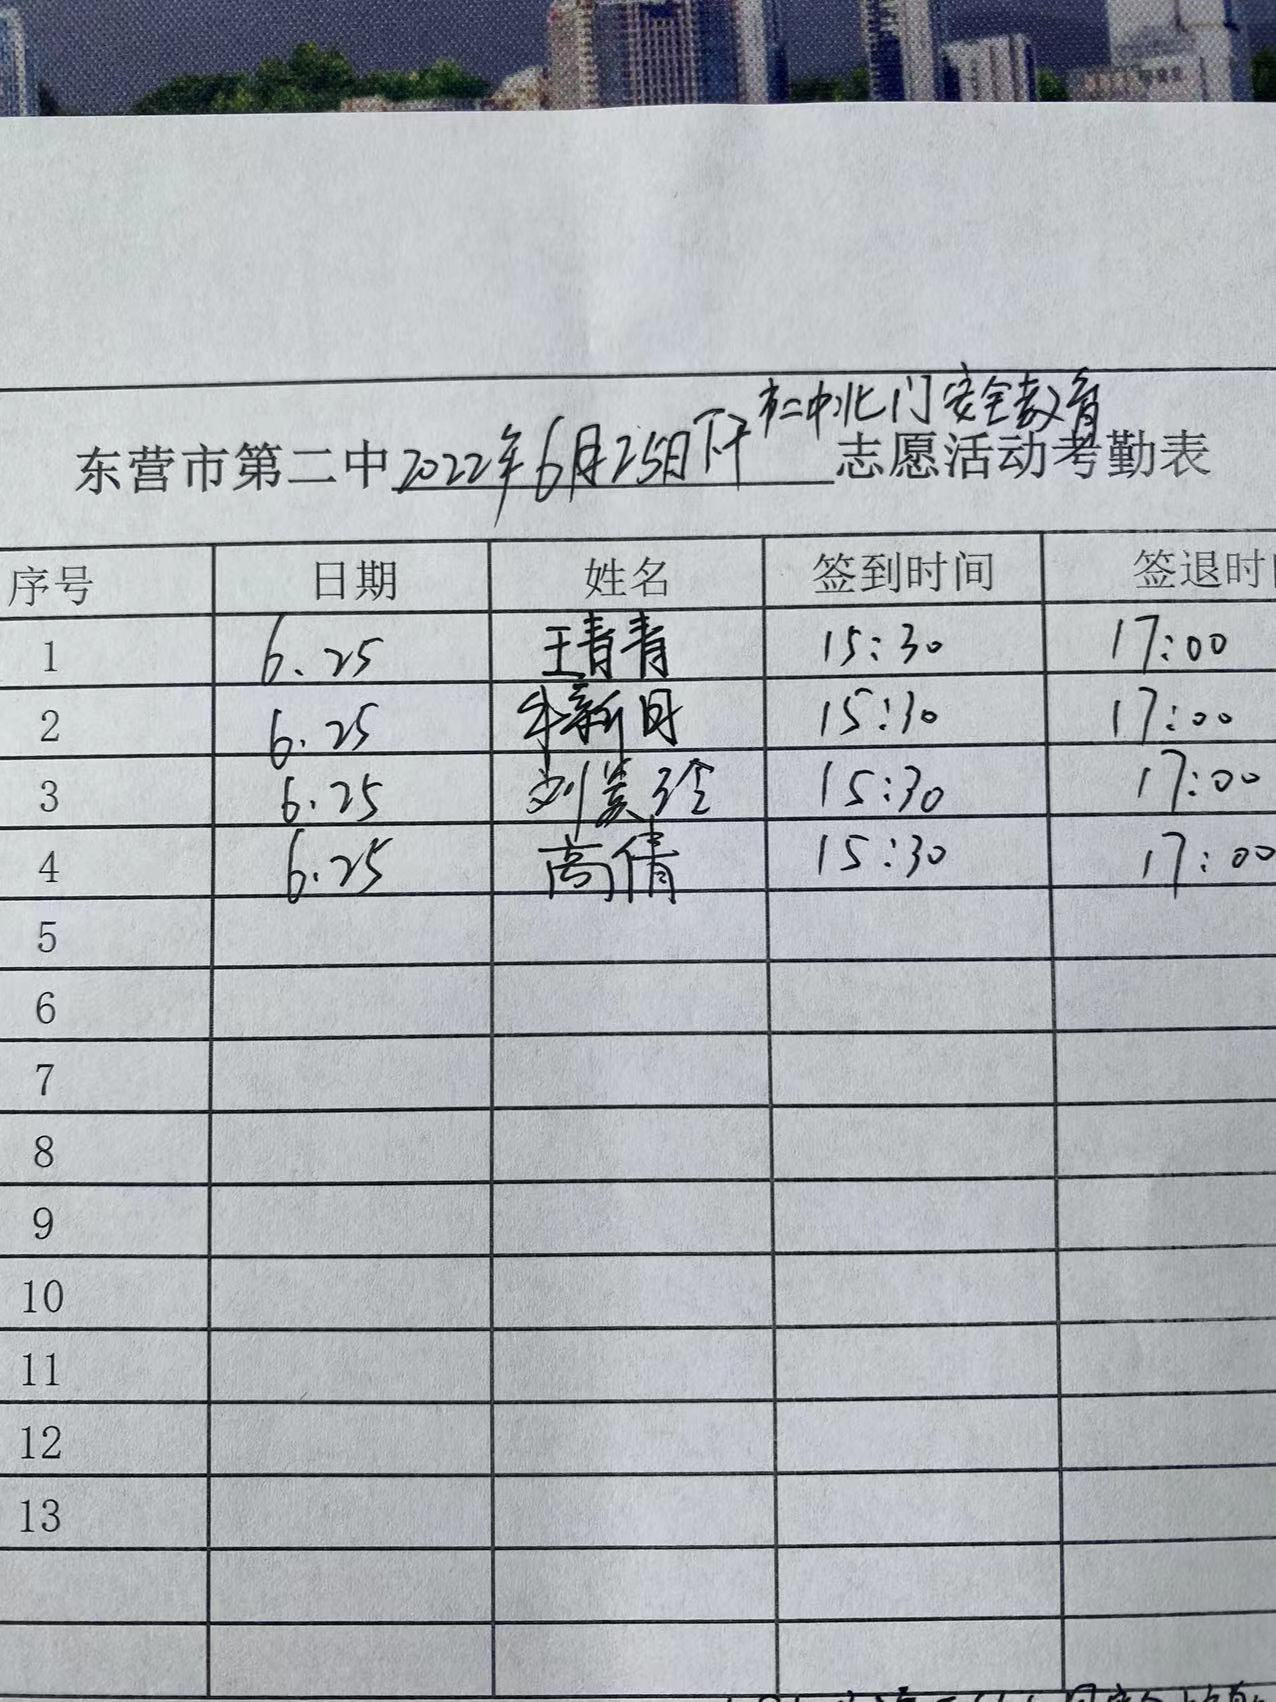 市二中北门安全教育
东营市第二中2022年6月25日下午志愿活动考勤表
序号 日期 姓名 签到时间 签退时
1 6.25 王青青 15:30 17:00
2 6.25 牛新月 15:30 17:00
3 6.25 刘美玲 15:30 17:00
4 6.25 高倩 15:30 17:00
5
6
7
8
9
10
11
12
13